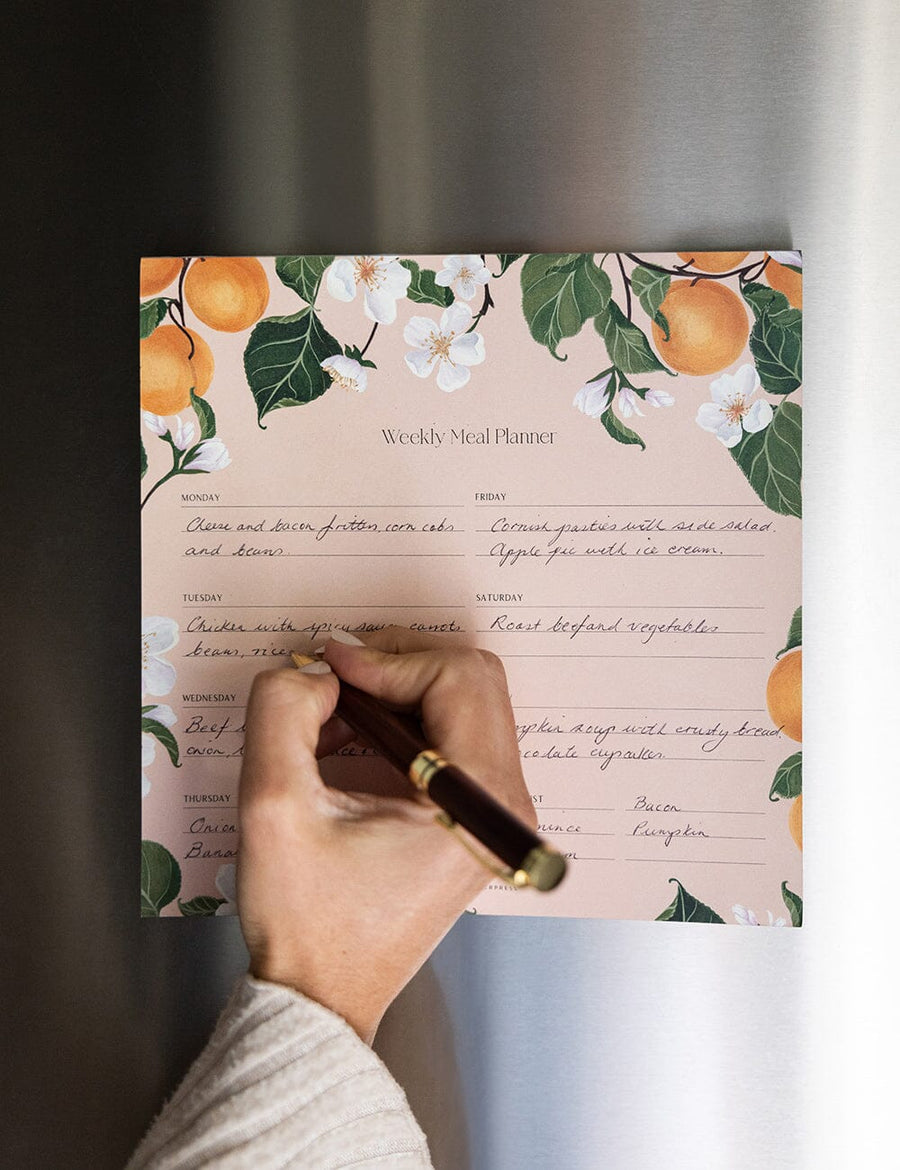 Weekly Meal Planner
MONDAY
Cheese and bacon fritters, corn cobs
and beans.
TUESDAY
Chicken with spicy sauce carrots
beans, rice
WEDNESDAY
Beef
onion,
THURSDAY
Onion
Bana
FRIDAY
Cornish pasties with side salad.
Apple pie with ice cream.
SATURDAY
Roast beef and vegetables
mpkin soup with crusty bread.
ocolate cupcakes.
ST
Bacon
mince
Pumpkin
m
ERPRESS